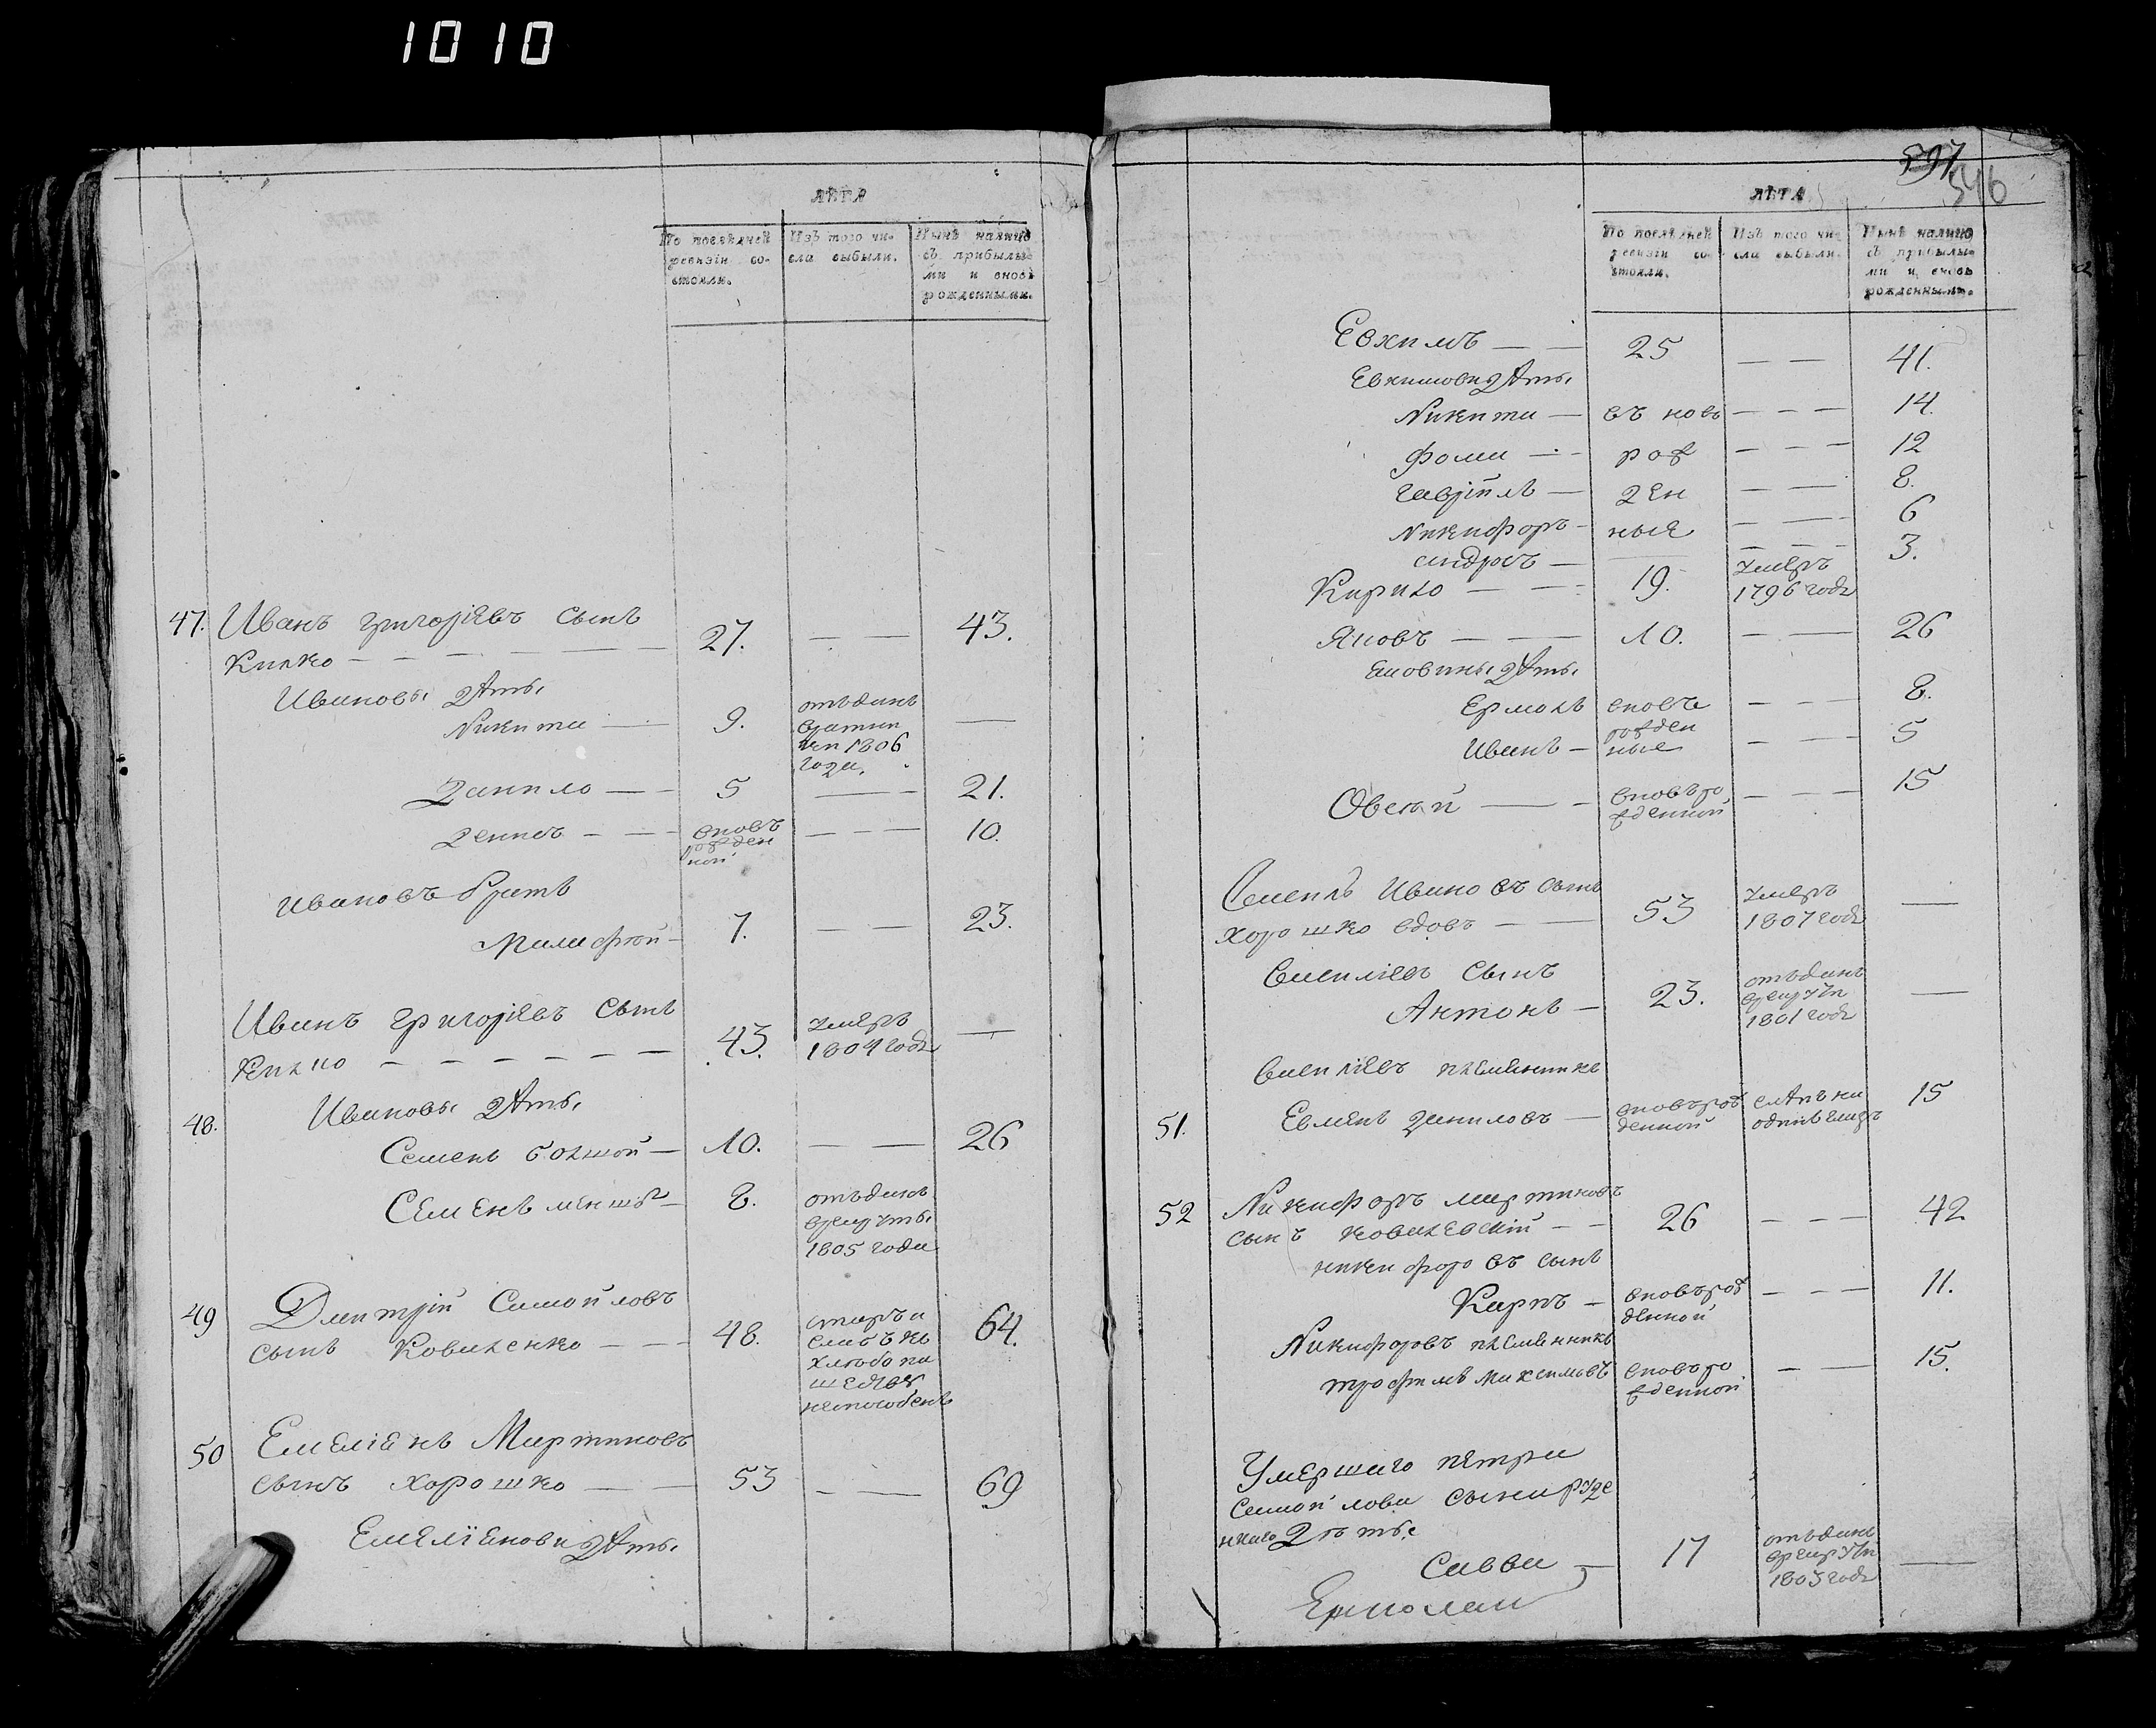 1010
ЛѢТА
По послѣдней ревизіи со-
стояли.
Изъ того чи-
сла выбыли.
Нынѣ налицо
съ прибылы-
ми и вновь
рожденными.
47. Иванъ григоріевъ сынъ
Килко — 27. — — 43.
Ивановы дѣти
Никита — 9. отъданъ
1806
года. —
Данило — 5 — 21.
Денисъ — вновъ
рожден
ной — — 10.
Ивановъ братъ
Малафѣй — 7. — — 23.
Иванъ григоріевъ сынъ
Килко — 43. умеръ
1804 года —
48. Ивановы дѣти
Семенъ болшой — 10. — — 26
Семенъ менш — 8. отъданъ
врекруты
1805 года
49 Дмитрій Самойловъ
сынъ Коваленко — 48. старъ и
слабъ къ
хлѣбопа
шеству
неспособенъ 64.
50 Емеліенъ Мартиновъ
сынъ хорошко — 53 — — 69
Емеліенови дѣти
597
546
ЛѢТА
По послѣдней
ревизіи со-
стояли.
Изъ того чи-
сла выбыли.
Нынѣ налицо
съ прибылы-
ми и вновь
рожденными.
Евхимъ — 25 — — 41.
Евхимови дѣти
Никита — въ новь — — 14.
Фома — рож — — 12
гавріилъ — ден — — 8.
Никифоръ — ныя — — 6
андрей — — — 3.
Кирило — 19. умеръ
1796 года
Яковъ — 10. — — 26
Яковины дѣти
Ермолъ вновъ — — 8.
рожден
Иванъ — ные — — 5
Овсѣй — вновъро
жденной — — 15
Василь Ивановъ сынъ
хорошко вдовъ — 53 умеръ
1807 года —
Василіевъ сынъ
Антонъ — 23. отъданъ
врекруты
1801 года —
Василіевъ племенникъ
51. Евменъ Даниловъ — вновърож
денной слѣпъ на
одинъ глазъ 15
52 Никифоръ мартиновъ
сынъ ковалевскій — 26 — — 42
никифоровъ сынъ
Карпъ — вновърож
денной — — 11.
Никифоровъ племенникъ
трофимъ максимовъ вновъро
жденной — — 15.
Умершаго петра
самойлова сына рудe
нкаго дѣти
Савва — 17 отъданъ
врекруты
1803 года —
Ермолай